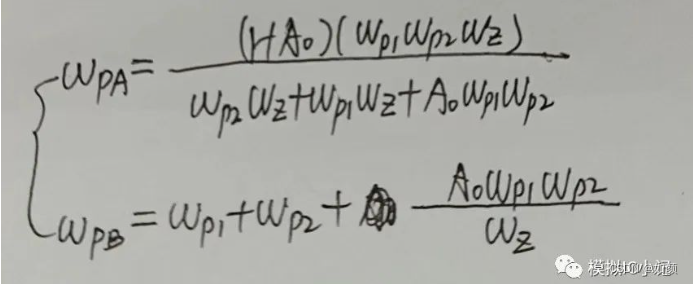 ωPA = (1+A₀)(ωp₁ωp₂ωz) / (ωp₂ωz+ωp₁ωz+A₀ωp₁ωp₂)
ωPB = ωp₁+ωp₂+ A₀ωp₁ωp₂ / ωz
模拟IC小记